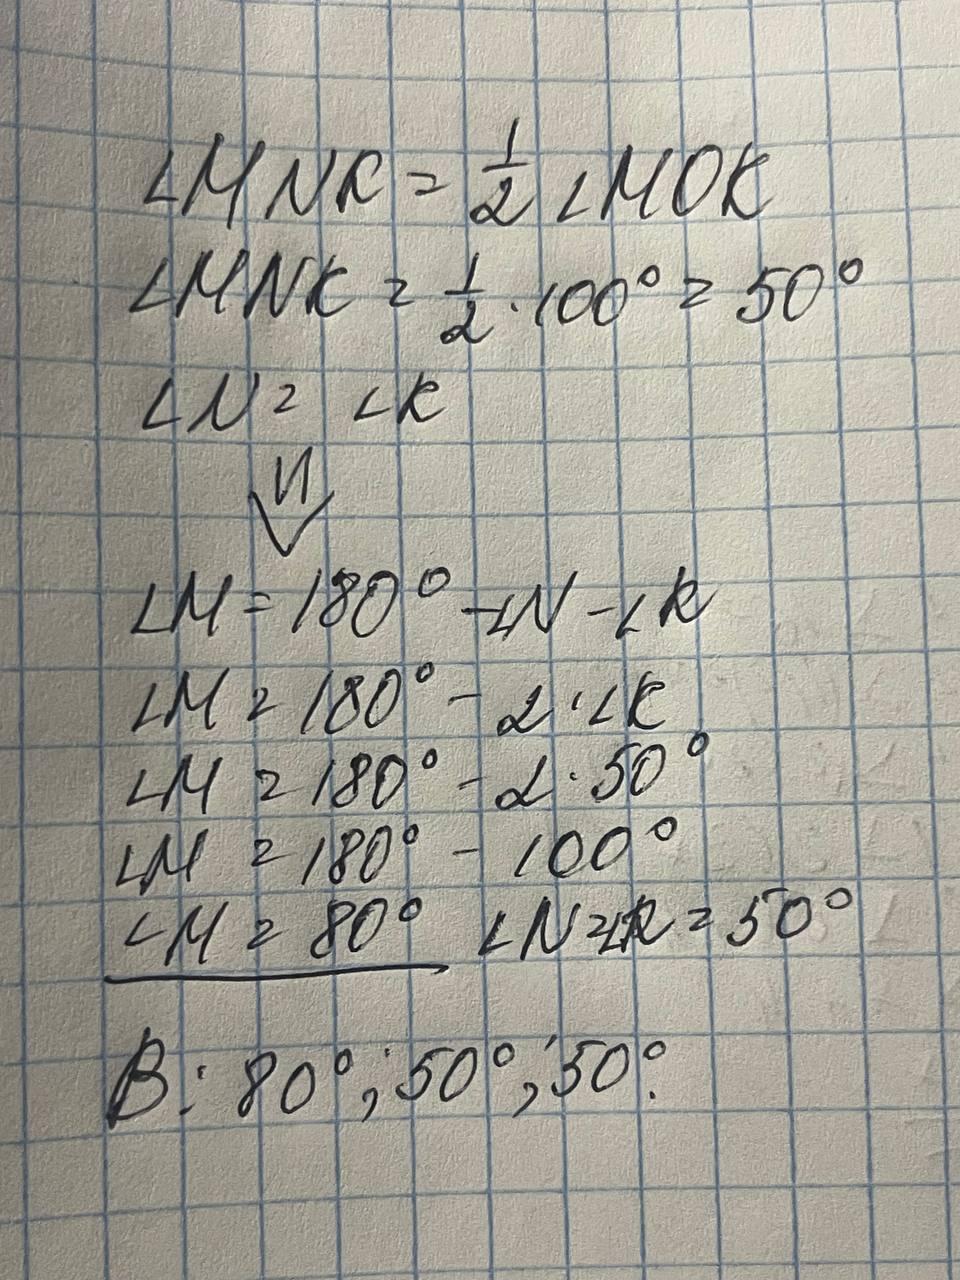 ∠MNK = 1/2 ∠MOK
∠MNK = 1/2 · 100° = 50°
∠N = ∠K
И
∠M = 180° - ∠N - ∠K
∠M = 180° - 2 · ∠K
∠M = 180° - 2 · 50°
∠M = 180° - 100°
∠M = 80° ∠N = ∠K = 50°
В: 80°; 50°; 50°.